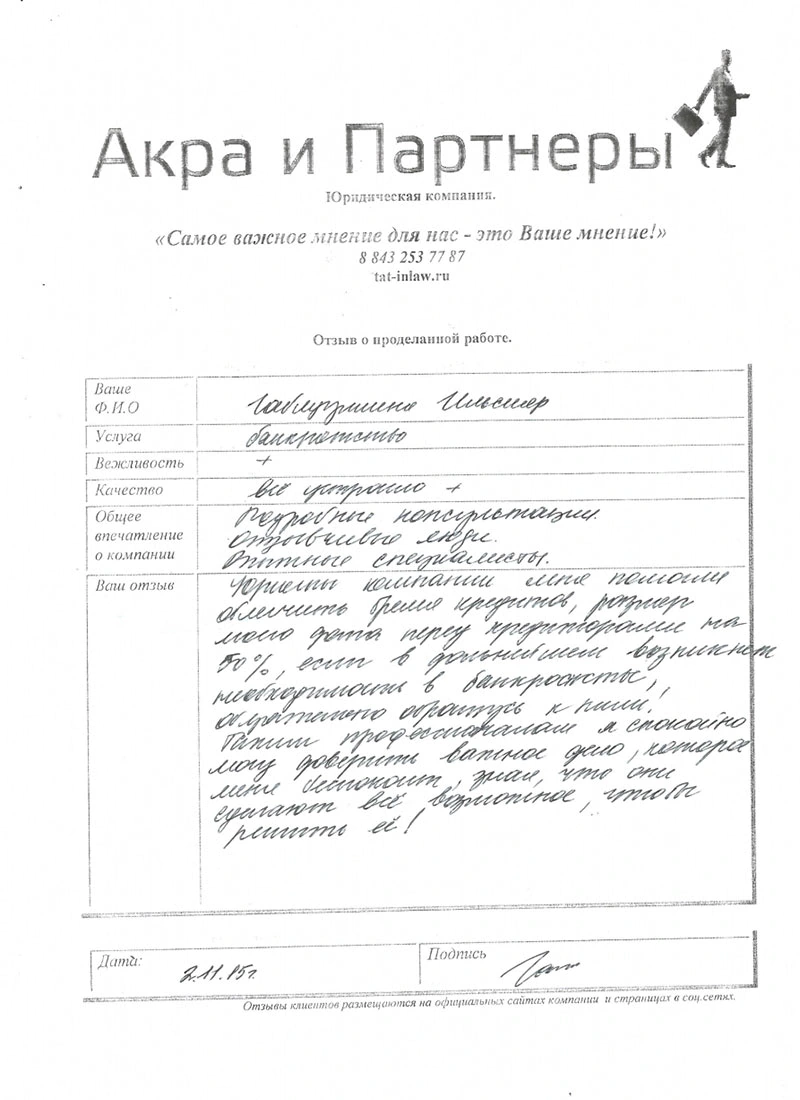 Акра и Партнеры
Юридическая компания.
«Самое важное мнение для нас - это Ваше мнение!»
8 843 253 77 87
tat-inlaw.ru
Отзыв о проделанной работе.
Ваше
Ф.И.О
Услуга банкротство
Вежливость +
Качество всё устроило +
Общее Подробные консультации.
впечатление Отзывчивые люди.
о компании Опытные специалисты.
Ваш отзыв Юристы компании мне помогли
облегчить бремя кредитов, размер
моего долга перед кредиторами на
50%, если в дальнейшем возникнет
необходимость в
обязательно обращусь к ним!
Таким професионалам я спокойно
могу доверить важное дело, которое
меня беспокоит, зная, что они
сделают всё возможное, чтобы
решить её!
Дата: 2.11.15г
Подпись
Отзывы клиентов размещаются на официальных сайтах компании и страницах в соц.сетях.